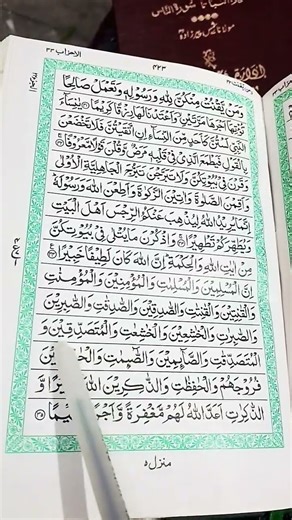 الاحزاب ٣٣
٤٢٣
ومن یقنت ٢٢
وَمَنْ يَّقْنُتْ مِنْكُنَّ لِلّٰهِ وَرَسُوْلِهٖ وَتَعْمَلْ صَالِحًا
نُّؤْتِهَآ اَجْرَهَا مَرَّتَيْنِ وَاَعْتَدْنَا لَهَا رِزْقًا كَرِيْمًا يٰنِسَآءَ
النَّبِيِّ لَسْتُنَّ كَاَحَدٍ مِّنَ النِّسَآءِ اِنِ اتَّقَيْتُنَّ فَلَا تَخْضَعْنَ
بِالْقَوْلِ فَيَطْمَعَ الَّذِيْ فِيْ قَلْبِهٖ مَرَضٌ وَّقُلْنَ قَوْلًا مَّعْرُوْفًا
وَقَرْنَ فِيْ بُيُوْتِكُنَّ وَلَا تَبَرَّجْنَ تَبَرُّجَ الْجَاهِلِيَّةِ الْاُوْلٰى
وَاَقِمْنَ الصَّلٰوةَ وَاٰتِيْنَ الزَّكٰوةَ وَاَطِعْنَ اللّٰهَ وَرَسُوْلَهٗ
اِنَّمَا يُرِيْدُ اللّٰهُ لِيُذْهِبَ عَنْكُمُ الرِّجْسَ اَهْلَ الْبَيْتِ
وَيُطَهِّرَكُمْ تَطْهِيْرًا وَاذْكُرْنَ مَا يُتْلٰى فِيْ بُيُوْتِكُنَّ
مِنْ اٰيٰتِ اللّٰهِ وَالْحِكْمَةِ اِنَّ اللّٰهَ كَانَ لَطِيْفًا خَبِيْرًا
اِنَّ الْمُسْلِمِيْنَ وَالْمُسْلِمٰتِ وَالْمُؤْمِنِيْنَ وَالْمُؤْمِنٰتِ
وَالْقٰنِتِيْنَ وَالْقٰنِتٰتِ وَالصّٰدِقِيْنَ وَالصّٰدِقٰتِ وَالصّٰبِرِيْنَ
وَالصّٰبِرٰتِ وَالْخٰشِعِيْنَ وَالْخٰشِعٰتِ وَالْمُتَصَدِّقِيْنَ وَ
الْمُتَصَدِّقٰتِ وَالصَّآئِمِيْنَ وَالصّٰٓئِمٰتِ
فُرُوْجَهُمْ وَالْحٰفِظٰتِ وَالذّٰكِرِيْنَ اللّٰهَ وَّ
الذّٰكِرٰتِ اَعَدَّ اللّٰهُ لَهُمْ مَّغْفِرَةً وَّاَجْرًا ٣٥
منزل ٥